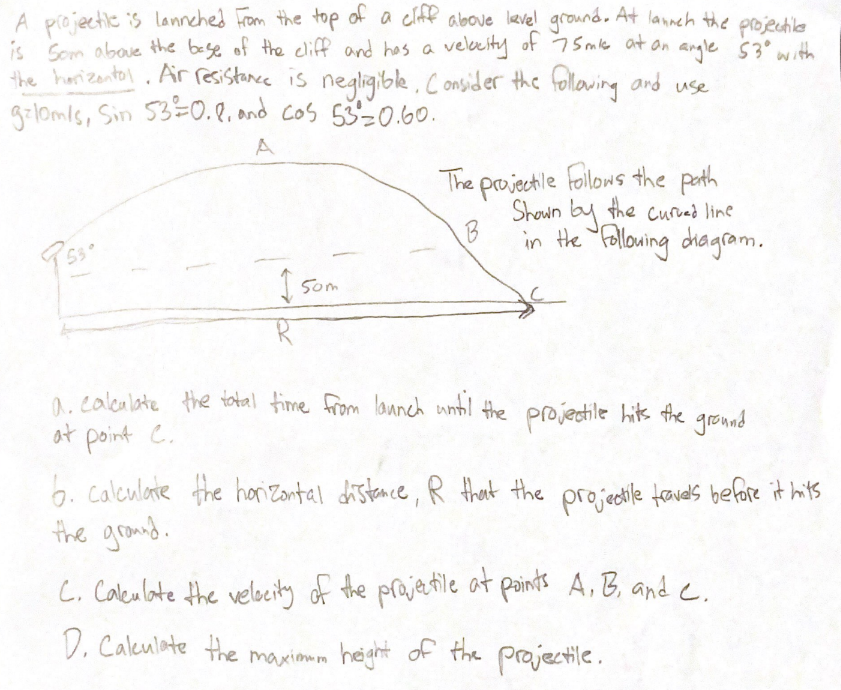 A projectile is lannched from the top of a cliff above level ground. At launch the projectile
is 50m above the base of the cliff and has a velocity of 75m/s at an angle 53° with
the horizontal. Air resistance is negligible. Consider the following and use
g=10m/s, Sin 53°=0.8, and cos 53°=0.60.
A
The projectile follows the path
Shown by the curved line
in the following diagram.
B
53°
50m
C
R
a. calculate the total time from launch until the projectile hits the ground
at point C.
b. calculate the horizontal distance, R that the projectile travels before it hits
the ground.
C. Calculate the velocity of the projectile at points A, B, and C.
D. Calculate the maximum height of the projectile.